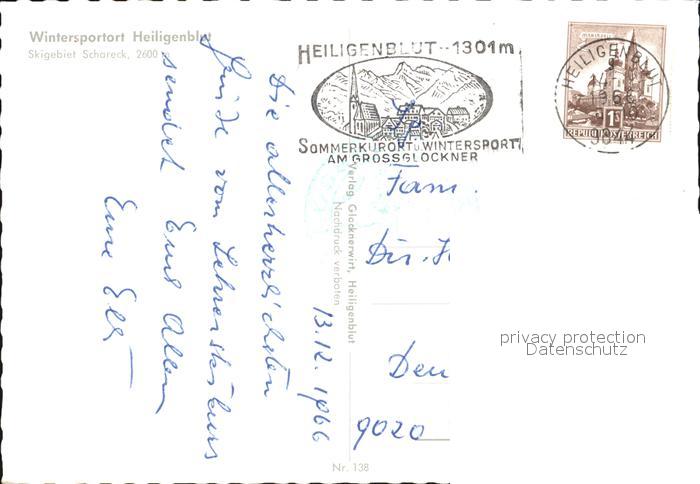 Wintersportort Heiligenblut
Skigebiet Schareck, 2600 m
HEILIGENBLUT - 1301m
SOMMERKURORT U. WINTERSPORT
AM GROSSGLOCKNER
HEILIGENBLUT
1S
REPUBLIK ÖSTERREICH
13.12.1966
Die allerherzlichsten
Grüße vom Lehrerskikurs
sendet Euch Allen
Eure Elli
Verlag Glocknerwirt, Heiligenblut
Nachdruck verboten
Fam.
Dir.
9020
Nr. 138
privacy protection
Datenschutz